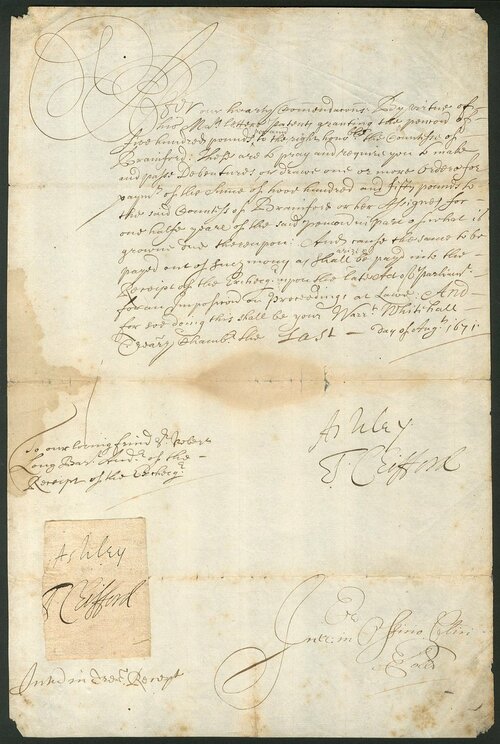 After our hearty Comendations By virtue of
his Ma:ts letters Patents granting the pencon of
five hundred pounds p annum to the right hono:ble the Countesse of
Bramford: These are to pray and require you to make
and passe Debentures or drawe one or more Orders for
paym:t of the Sume of twoe hundred and fifty pounds to
the said Countess of Bramford or her Assignes for
one halfe year of the said pencon in part of what is
growne due thereupon: And cause the same to be
payed out of such mony as shall be payd into the
Receipt of the Excheq:r upon the late Act of Parliam:t
for an Imposicon on Proceedings at Lawe: And
for soe doing this shall be your Warr:t Whitehall
Trea:ry Chamb:rs the Last day of Aug:t 1671:
Ashley
T Clifford
To our loving friend S:r Robert
Long Bar:t Aud:r of the
Receipt of the Excheq:r
Ashley
T Clifford
Intr: in Officino
Int:d in Receipt